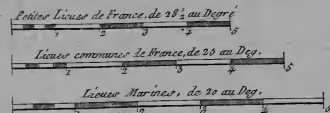 Petites Lieues de France, de 28½ au Degré
1 2 3 4 5
Lieues communes de France, de 25 au Deg.
1 2 3 4 5
Lieues Marines, de 20 au Deg.